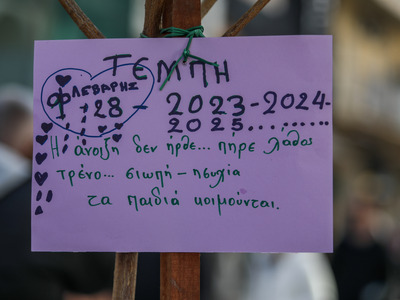 ΤΕΜΠΗ
ΦΛΕΒΑΡΗΣ
28 - 2023-2024-
2025........
Η άνοιξη δεν ήρθε... πήρε λάθος
τρένο... σιωπή - ησυχία
τα παιδιά κοιμούνται.